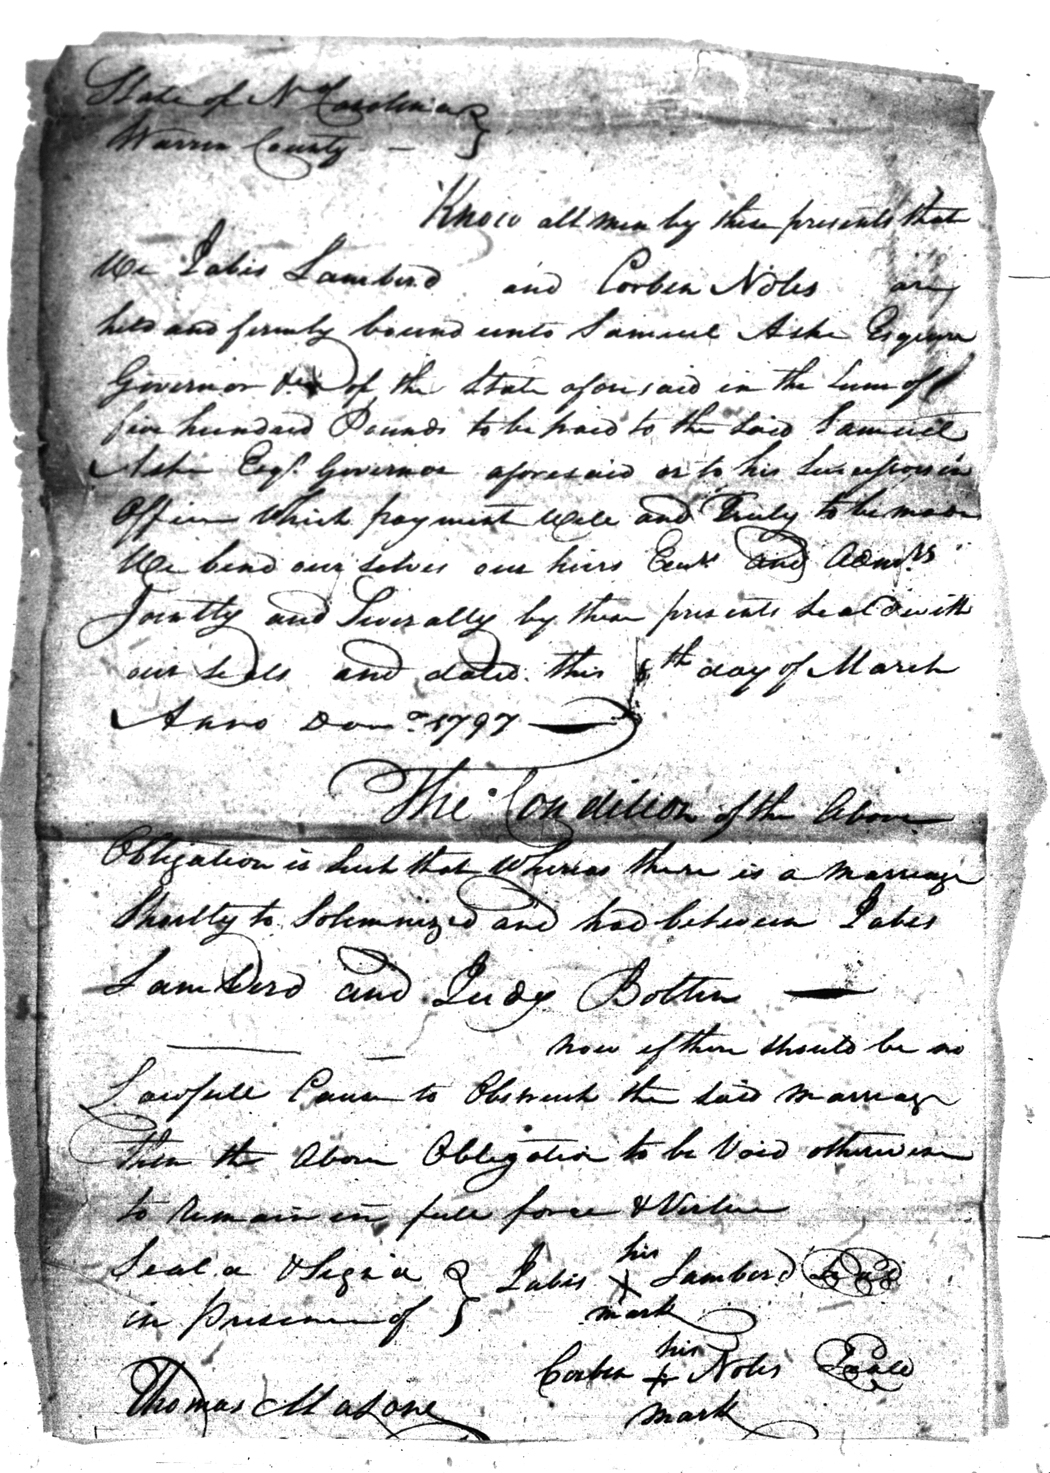 State of No. Carolina }
Warren County — }
Know all men by these presents that
We Jabis Lamberd and Corben Nobs are
held and firmly bound unto Samuel Ashe Esquire
Governor &c. of the State aforesaid in the Sum of
five hundred Pounds to be paid to the Said Samuel
Ashe Esqr. Governor aforesaid or to his Successors in
Office Which payment Well and Truly to be made
We bend our selves our heirs Exrs and Admrs
Jointly and Severally by these presents Seald with
our Seals and dated this 6th day of March
Anno Domo. 1797
The Condition of the Above
Obligation is Such that Whereas there is a Marriage
Shortly to Solemnized and had between Jabis
Lamberd and Judy Bolten —
Now if there should be no
Lawfull Cause to Obstruct the Said Marriage
then the Above Obligation to be Void otherwise
to Remain in full force & Virtue
Seal'd & Sign'd } Jabis his X mark Lamberd Seal
in Presence of }
Thomas Malone Corben his + mark Nobs Seal